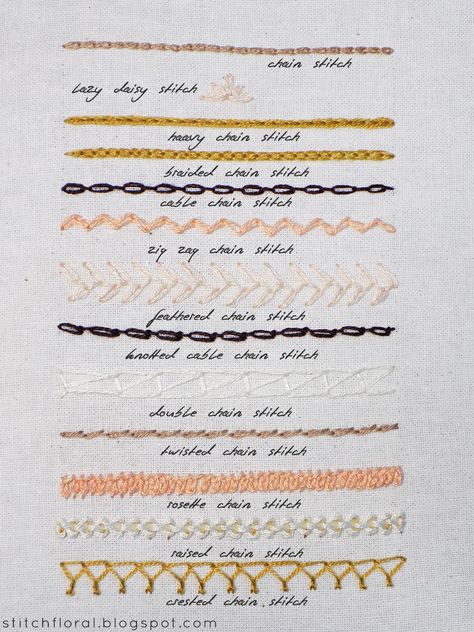 chain stitch
lazy daisy stitch
heavy chain stitch
braided chain stitch
cable chain stitch
zig zag chain stitch
feathered chain stitch
knotted cable chain stitch
double chain stitch
twisted chain stitch
rosette chain stitch
raised chain stitch
crested chain stitch
stitchfloral.blogspot.com